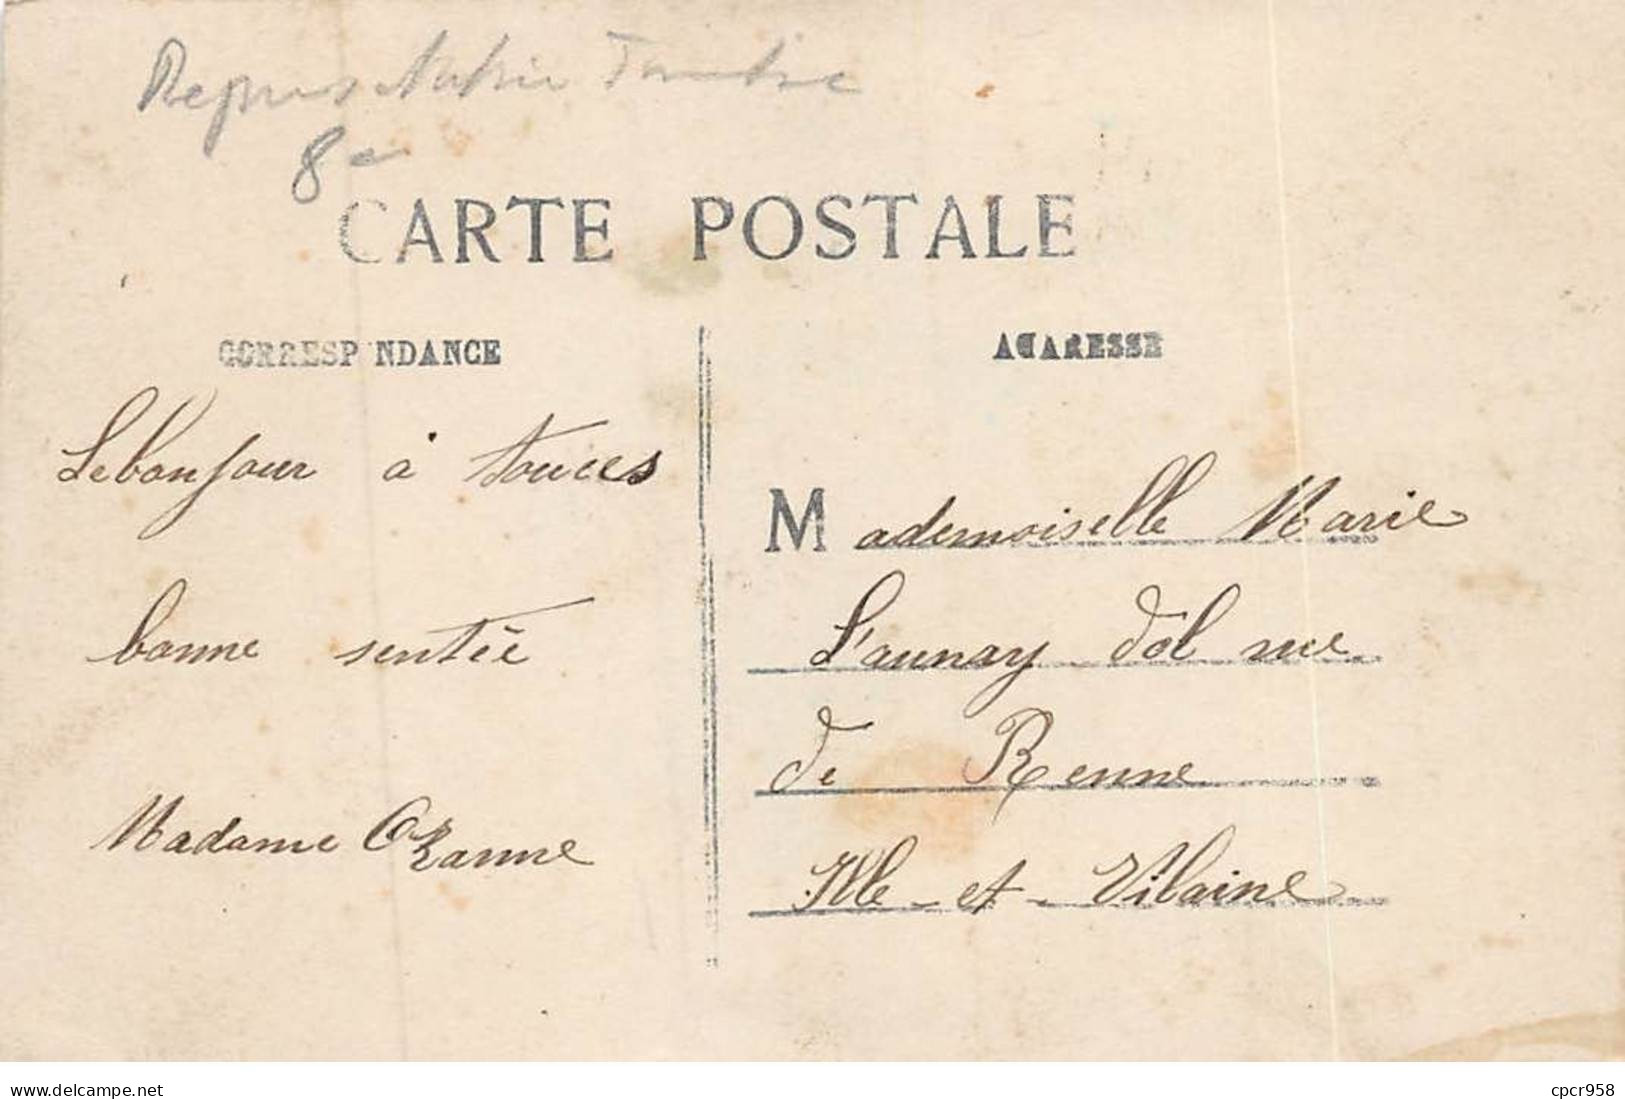 8e
CARTE POSTALE
CORRESP NDANCE
Lebonjour à toutes
bonne sentée
Madame Ozanne
Mademoiselle Marie
L'aunay dol rue
de Renne
Ille-et-Vilaine
www.delcampe.net
cpcr958